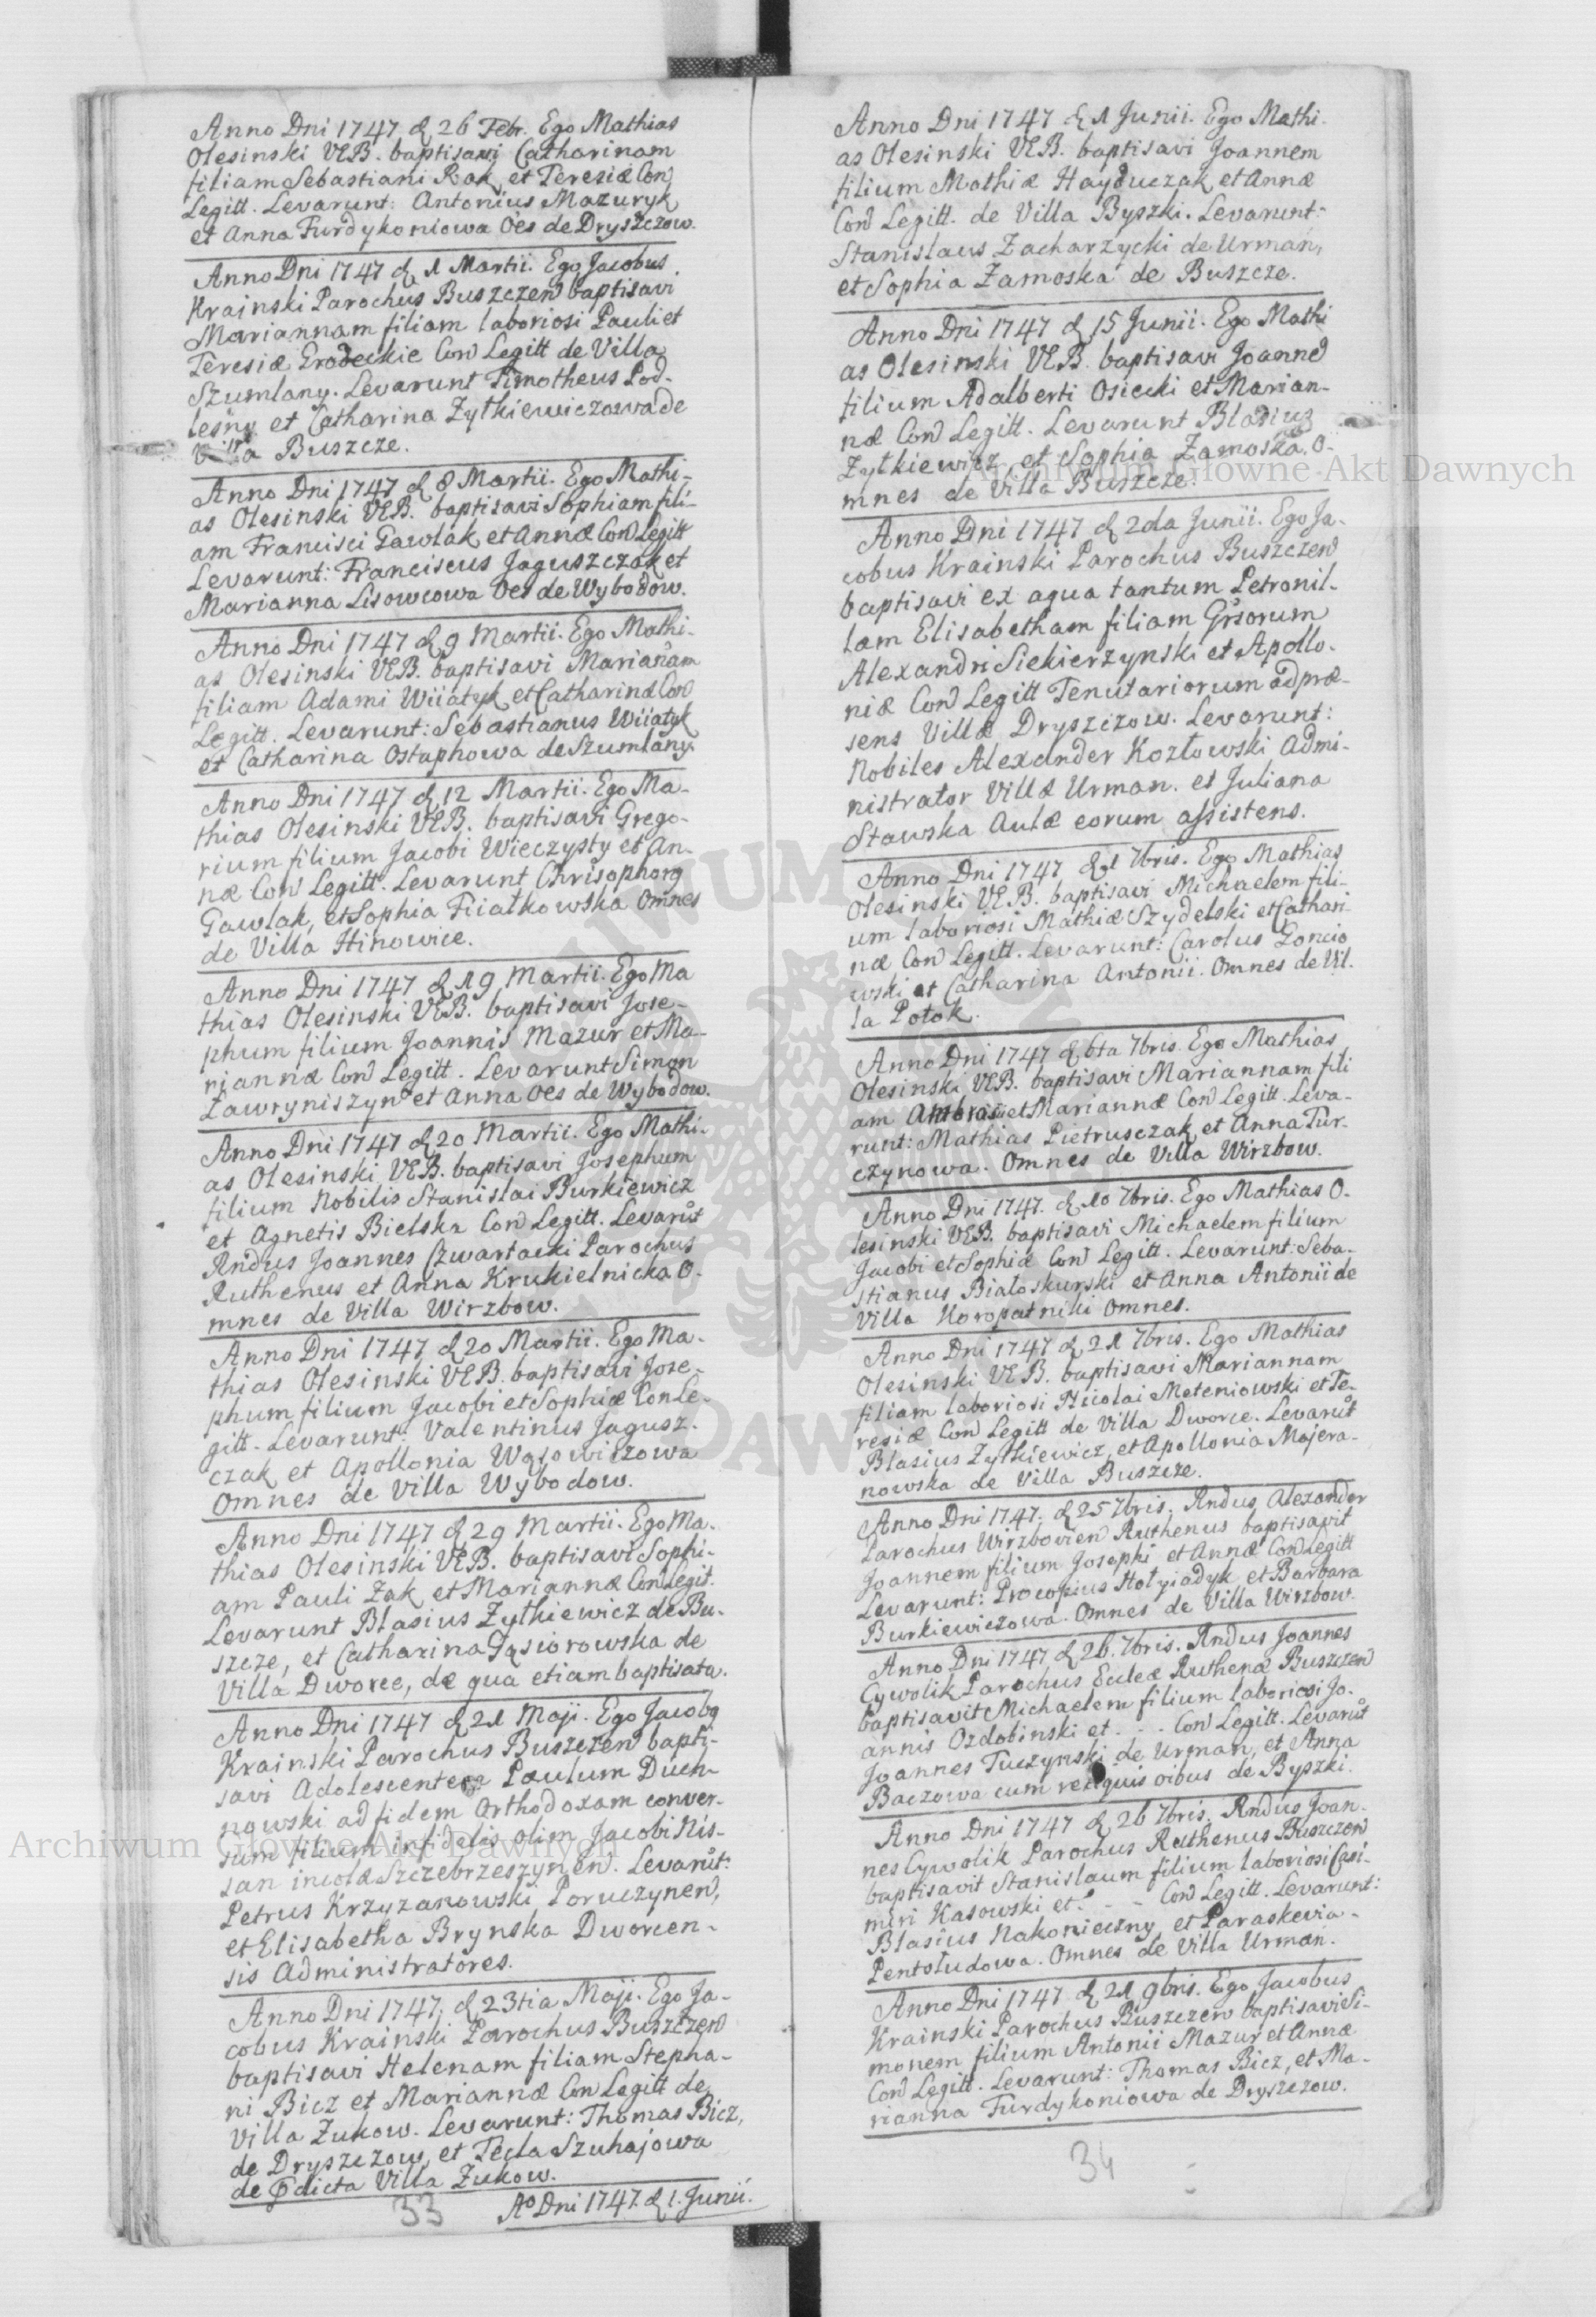 Anno Dni 1747 d 26 Febr. Ego Mathias
Olesinski VEB. baptisavi Catharinam
filiam Sebastiani Rak et Teresiæ Con
Legitt. Levarunt: Antonius Mazuryk
et Anna Furdykoniowa Oes de Dryszczow.
Anno Dni 1747 d 1 Martii. Ego Jacobus
Krainski Parochus Buszczen baptisavi
Mariannam filiam laboriosi Pauli et
Teresiæ Grodeckie Con Legitt de Villa
Szumlany. Levarunt Timotheus Pod-
leśny et Catharina Zytkiewiczowa de
Villa Buszcze.
Anno Dni 1747 d 8 Martii. Ego Mathi-
as Olesinski VEB. baptisavi Sophiam fili-
am Francisci Gawlak et Annæ Con Legitt
Levarunt: Franciscus Jaguszczak et
Marianna Lisowcowa Oes de Wybodow.
Anno Dni 1747 d 9 Martii. Ego Mathi-
as Olesinski VEB. baptisavi Mariañam
filiam Adami Wiiatyk et Catharinæ Con
Legitt. Levarunt: Sebastianus Wiiatyk
et Catharina Ostaphowa de Szumlany.
Anno Dni 1747 d 12 Martii. Ego Ma-
thias Olesinski VEB. baptisavi Grego-
rium filium Jacobi Wieczysty et An-
næ Con Legitt. Levarunt Chrisophorg
Gawlak, et Sophia Fiiałkowska Omnes
de Villa Hinowice.
Anno Dni 1747 d 19 Martii. Ego Ma
thias Olesinski VEB. baptisavi Jose-
phum filium Joannis Mazur et Ma-
riannæ Con Legitt. Levarunt Simon
Ławryniszyn et Anna Oes de Wybodow.
Anno Dni 1747 d 20 Martii. Ego Mathi-
as Olesinski VEB. baptisavi Josephum
filium Nobilis Stanislai Burkiewicz
et Agnetis Bielska Con Legitt. Levarut
Rndus Joannes Czwartacki Parochus
Ruthenus et Anna Krukielnicka O-
mnes de Villa Wirzbow.
Anno Dni 1747 d 20 Martii. Ego Ma-
thias Olesinski VEB. baptisavi Jose-
phum filium Jacobi et Sophiæ Con Le-
gitt. Levarunt: Valentinus Jagusz-
czak et Apollonia Wąsowiczowa
Omnes de Villa Wybodow.
Anno Dni 1747 d 29 Martii. Ego Ma-
thias Olesinski VEB. baptisavi Sophi-
am Pauli Zak et Mariannæ Con Legit.
Levarunt Blasius Zytkiewicz de Bu-
szcze, et Catharina Gąsiorowska de
Villa Dworce, de qua etiam baptisata.
Anno Dni 1747 d 21 Maji. Ego Jacobg
Krainski Parochus Buszczen bapti-
savi Adolescentem Paulum Duch-
nowski ad fidem Orthodoxam conver-
sum filium infidelis olim Jacobi Nis-
san incolæ Szczebrzeszynen. Levarut:
Petrus Krzyzanowski Poruczynen,
et Elisabetha Brynska Dworcen-
sis Administratores.
Anno Dni 1747. d 23tia Maji. Ego Ja-
cobus Krainski Parochus Buszczen
baptisavi Helenam filiam Stepha-
ni Bicz et Mariannæ Con Legitt de
Villa Zukow. Levarunt: Thomas Bicz,
de Dryszczow, et Tecla Szuhajowa
de pdicta Villa Zukow.
33
Ao Dni 1747. d 1. Junii.
Anno Dni 1747 d 1 Junii. Ego Mathi-
as Olesinski VEB. baptisavi Joannem
filium Mathiæ Hayduczak et Annæ
Con Legitt. de Villa Byszki. Levarunt:
Stanislaus Zacharzycki de Urman,
et Sophia Zamoska de Buszcze.
Anno Dni 1747 d 15 Junii. Ego Mathi
as Olesinski VEB. baptisavi Joanne
filium Adalberti Osiecki et Marian-
næ Con Legitt. Levarunt Blasius
Zytkiewicz, et Sophia Zamoska. O-
mnes de Villa Buszcze.
Anno Dni 1747 d 2da Junii. Ego Ja-
cobus Krainski Parochus Buszczen
baptisavi ex aqua tantum Petronil-
lam Elisabetham filiam Grsorum
Alexandri Siekierzynski et Apollo-
niæ Con Legitt Tenutariorum ad præ-
sens Villæ Dryszczow. Levarunt:
Nobiles Alexander Kozłowski Admi-
nistrator Villæ Urman. et Juliana
Stawska Aulæ eorum assistens.
Anno Dni 1747 d 1 7bris. Ego Mathias
Olesinski VEB. baptisavi Michaelem fili-
um laboriosi Mathiæ Szydelski et Cathari-
næ Con Legitt. Levarunt: Carolus Goncio
wski et Catharina Antonii. Omnes de Vil-
la Potok.
Anno Dni 1747 d 6ta 7bris. Ego Mathias
Olesinski VEB. baptisavi Mariannam fili
am Ambrosii et Mariannæ Con Legitt. Leva-
runt: Mathias Pietrusczak et Anna Tur-
czynowa. Omnes de Villa Wirzbow.
Anno Dni 1747. d 10 7bris. Ego Mathias O-
lesinski VEB. baptisavi Michaelem filium
Jacobi et Sophiæ Con Legitt. Levarunt: Seba-
stianus Białoskurski et Anna Antonii de
Villa Koropatniki Omnes.
Anno Dni 1747 d 21 7bris. Ego Mathias
Olesinski VEB. baptisavi Mariannam
filiam laboriosi Nicolai Meteniowski et Te-
resiæ Con Legitt de Villa Dworce. Levarut
Blasius Zytkiewicz, et Apollonia Majera-
nowska de Villa Buszcze.
Anno Dni 1747. d 25 7bris. Rndus Alexander
Parochus Wirzbovien Ruthenus baptisavit
Joannem filium Josephi et Annæ Con Legitt
Levarunt: Procopius Hołyiadyk et Barbara
Burkiewiczowa. Omnes de Villa Wirzbow.
Anno Dni 1747 d 26. 7bris. Rndus Joannes
Cywolik Parochus Eccleæ Ruthenæ Buszczen
baptisavit Michaelem filium laboriosi Jo-
annis Ozdobinski et - - - Con Legitt. Levarut
Joannes Tuczynski de Urman, et Anna
Baczowa cum reliquis oibus de Byszki.
Anno Dni 1747 d 26 7bris. Rndus Joan-
nes Cywolik Parochus Ruthenus Buszczen
baptisavit Stanislaum filium laboriosi Casi-
miri Kasowski et - - - Con Legitt. Levarunt:
Blasius Nakonieczny et Paraskevia
Pentsludowa. Omnes de Villa Urman.
Anno Dni 1747 d 21 9bris. Ego Jacobus
Krainski Parochus Buszczen baptisavi Si-
monem filium Antonii Mazur et Annæ
Con Legitt. Levarunt: Thomas Bicz, et Ma-
rianna Furdykoniowa de Dryszczow.
34
Archiwum Główne Akt Dawnych
Archiwum Główne Akt Dawnych